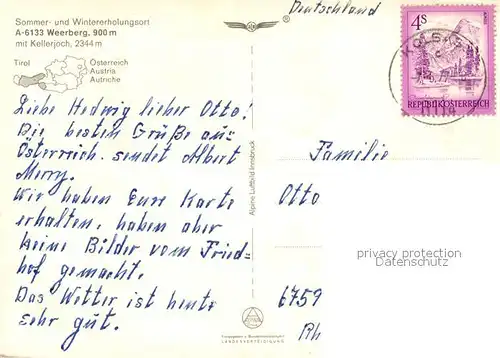 Sommer- und Wintererholungsort
A-6133 Weerberg, 900 m
mit Kellerjoch, 2344 m
Tirol
Österreich
Austria
Autriche
Liebe Hedwig lieber Otto!
Die besten Grüße aus
Österreich sendet Albert
Merry.
Wir haben Eure Karte
erhalten, haben aber
keine Bilder vom Fried-
hof gemacht.
Das Wetter ist heute
sehr gut.
Alpine Luftbild Innsbruck
LANDESVERTEIDIGUNG
®
Deutschland
4S
REPUBLIK ÖSTERREICH
Familie
Otto
privacy protection
Datenschutz
6759
Rh